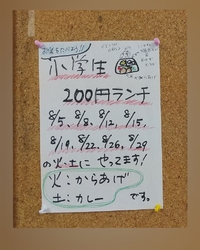 小学生
200円ランチ
8/5、8/8、8/12、8/15、
8/19、8/22、8/26、8/29
の火・土に やってます!
火:からあげ
土:カレー です。